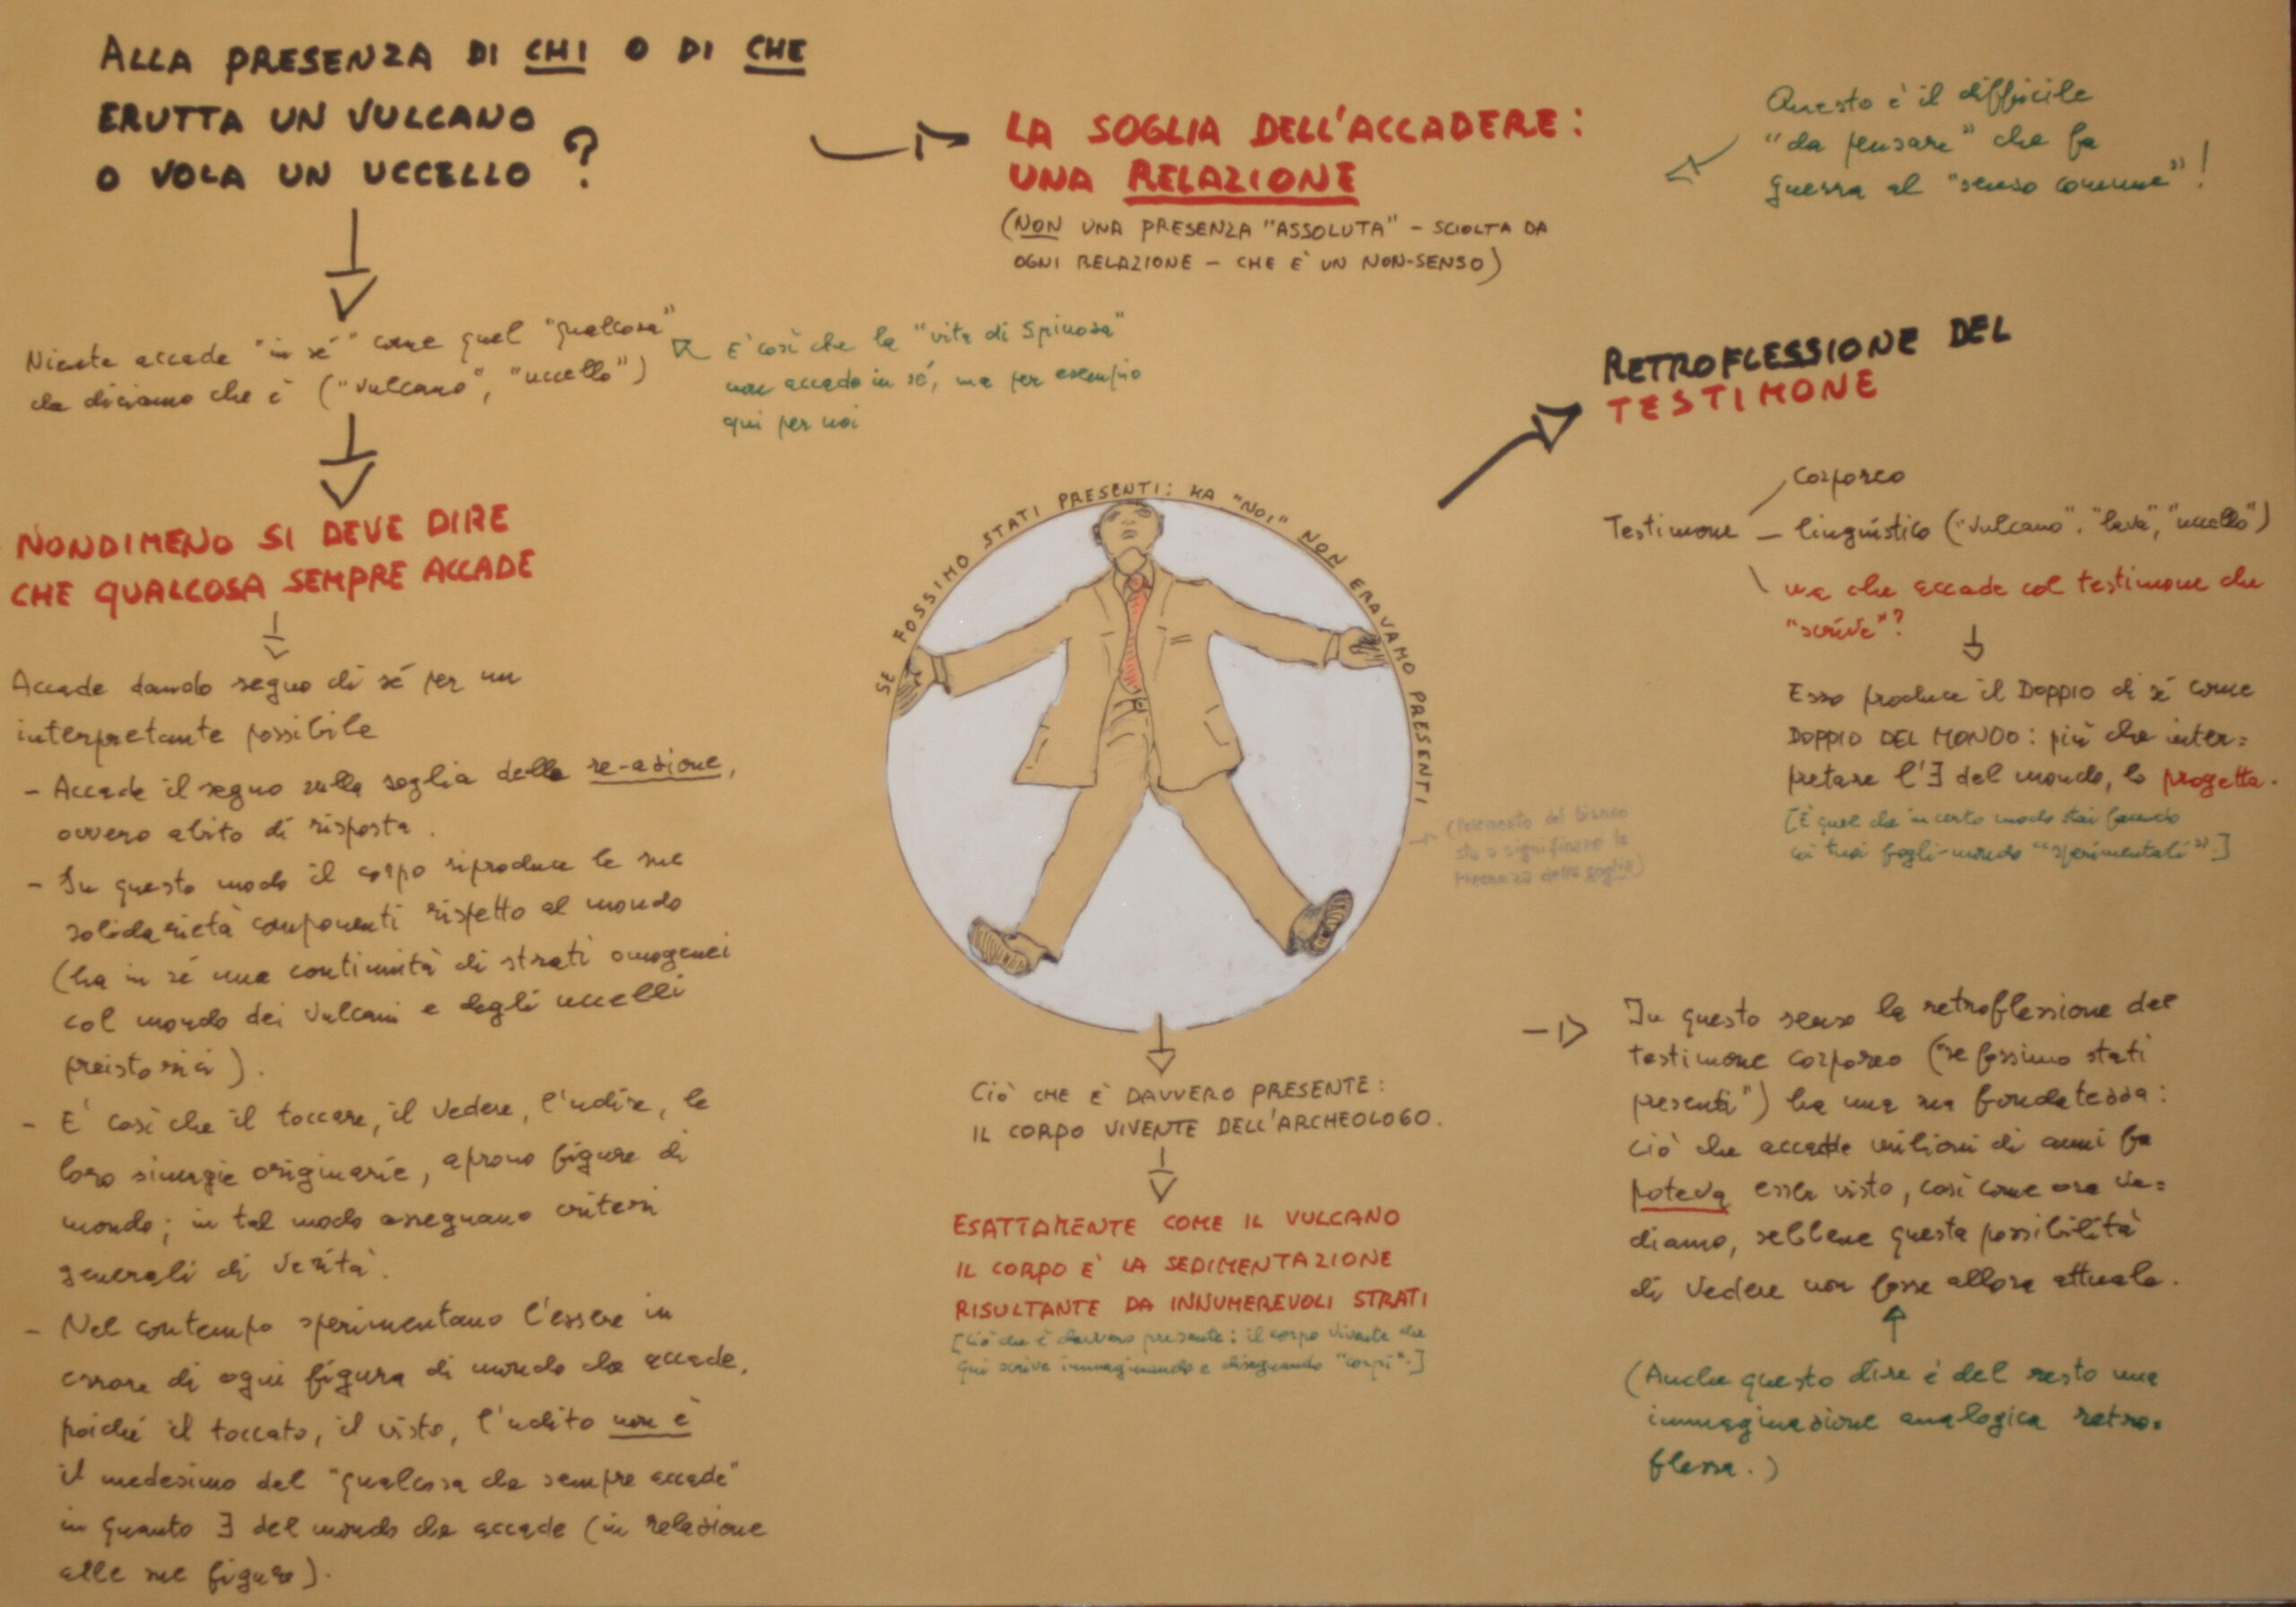 ALLA PRESENZA DI CHI O DI CHE
ERUTTA UN VULCANO
O VOLA UN UCCELLO ?
LA SOGLIA DELL'ACCADERE:
UNA RELAZIONE
(NON UNA PRESENZA "ASSOLUTA" - SCIOLTA DA
OGNI RELAZIONE - CHE E' UN NON-SENSO)
Questo è il difficile
"da pensare" che fa
guerra al "senso comune"!
Niente accade "in sé" come quel "qualcosa"
che diciamo che è ("vulcano", "uccello")
E' così che la "vita di Spinoza"
non accade in sé, ma per esempio
qui per noi
NONDIMENO SI DEVE DIRE
CHE QUALCOSA SEMPRE ACCADE
Accade dando segno di sé per un
interpretante possibile
- Accade il segno sulla soglia della re-azione,
ovvero abito di risposta.
- In questo modo il corpo riproduce le sue
solidarietà componenti rispetto al mondo
(ha in sé una continuità di strati omogenei
col mondo dei vulcani e degli uccelli
preistorici).
- E' così che il toccare, il vedere, l'udire, le
loro sinergie originarie, aprono figure di
mondo; in tal modo assegnano criteri
generali di verità.
- Nel contempo sperimentano l'essere in
errore di ogni figura di mondo che accade,
poiché il toccato, il visto, l'udito non è
il medesimo del "qualcosa che sempre accade"
in quanto ∃ del mondo che accade (in relazione
alle sue figure).
SE FOSSIMO STATI PRESENTI: MA "NOI" NON ERAVAMO PRESENTI
(l'elemento del bianco
sta a significare la
presenza della soglia)
CIÒ CHE È DAVVERO PRESENTE:
IL CORPO VIVENTE DELL'ARCHEOLOGO.
ESATTAMENTE COME IL VULCANO
IL CORPO E' LA SEDIMENTAZIONE
RISULTANTE DA INNUMEREVOLI STRATI
[Ciò che è davvero presente: il corpo vivente che
qui scrive immaginando e disegnando "corpi".]
RETROFLESSIONE DEL
TESTIMONE
Corporeo
Testimone - linguistico ("vulcano". "lava", "uccello")
ma che accade col testimone che
"scrive"?
Esso produce il DOPPIO di sé come
DOPPIO DEL MONDO: più che inter=
pretare l'∃ del mondo, lo progetta.
[È quel che in certo modo stai facendo
coi tuoi fogli-mondo "sperimentali".]
In questo senso la retroflessione del
testimone corporeo ("se fossimo stati
presenti") ha una sua fondatezza:
ciò che accadde milioni di anni fa
poteva esser visto, così come ora ve=
diamo, sebbene questa possibilità
di vedere non fosse allora attuale.
(Anche questo dire è del resto una
immaginazione analogica retro=
flessa.)